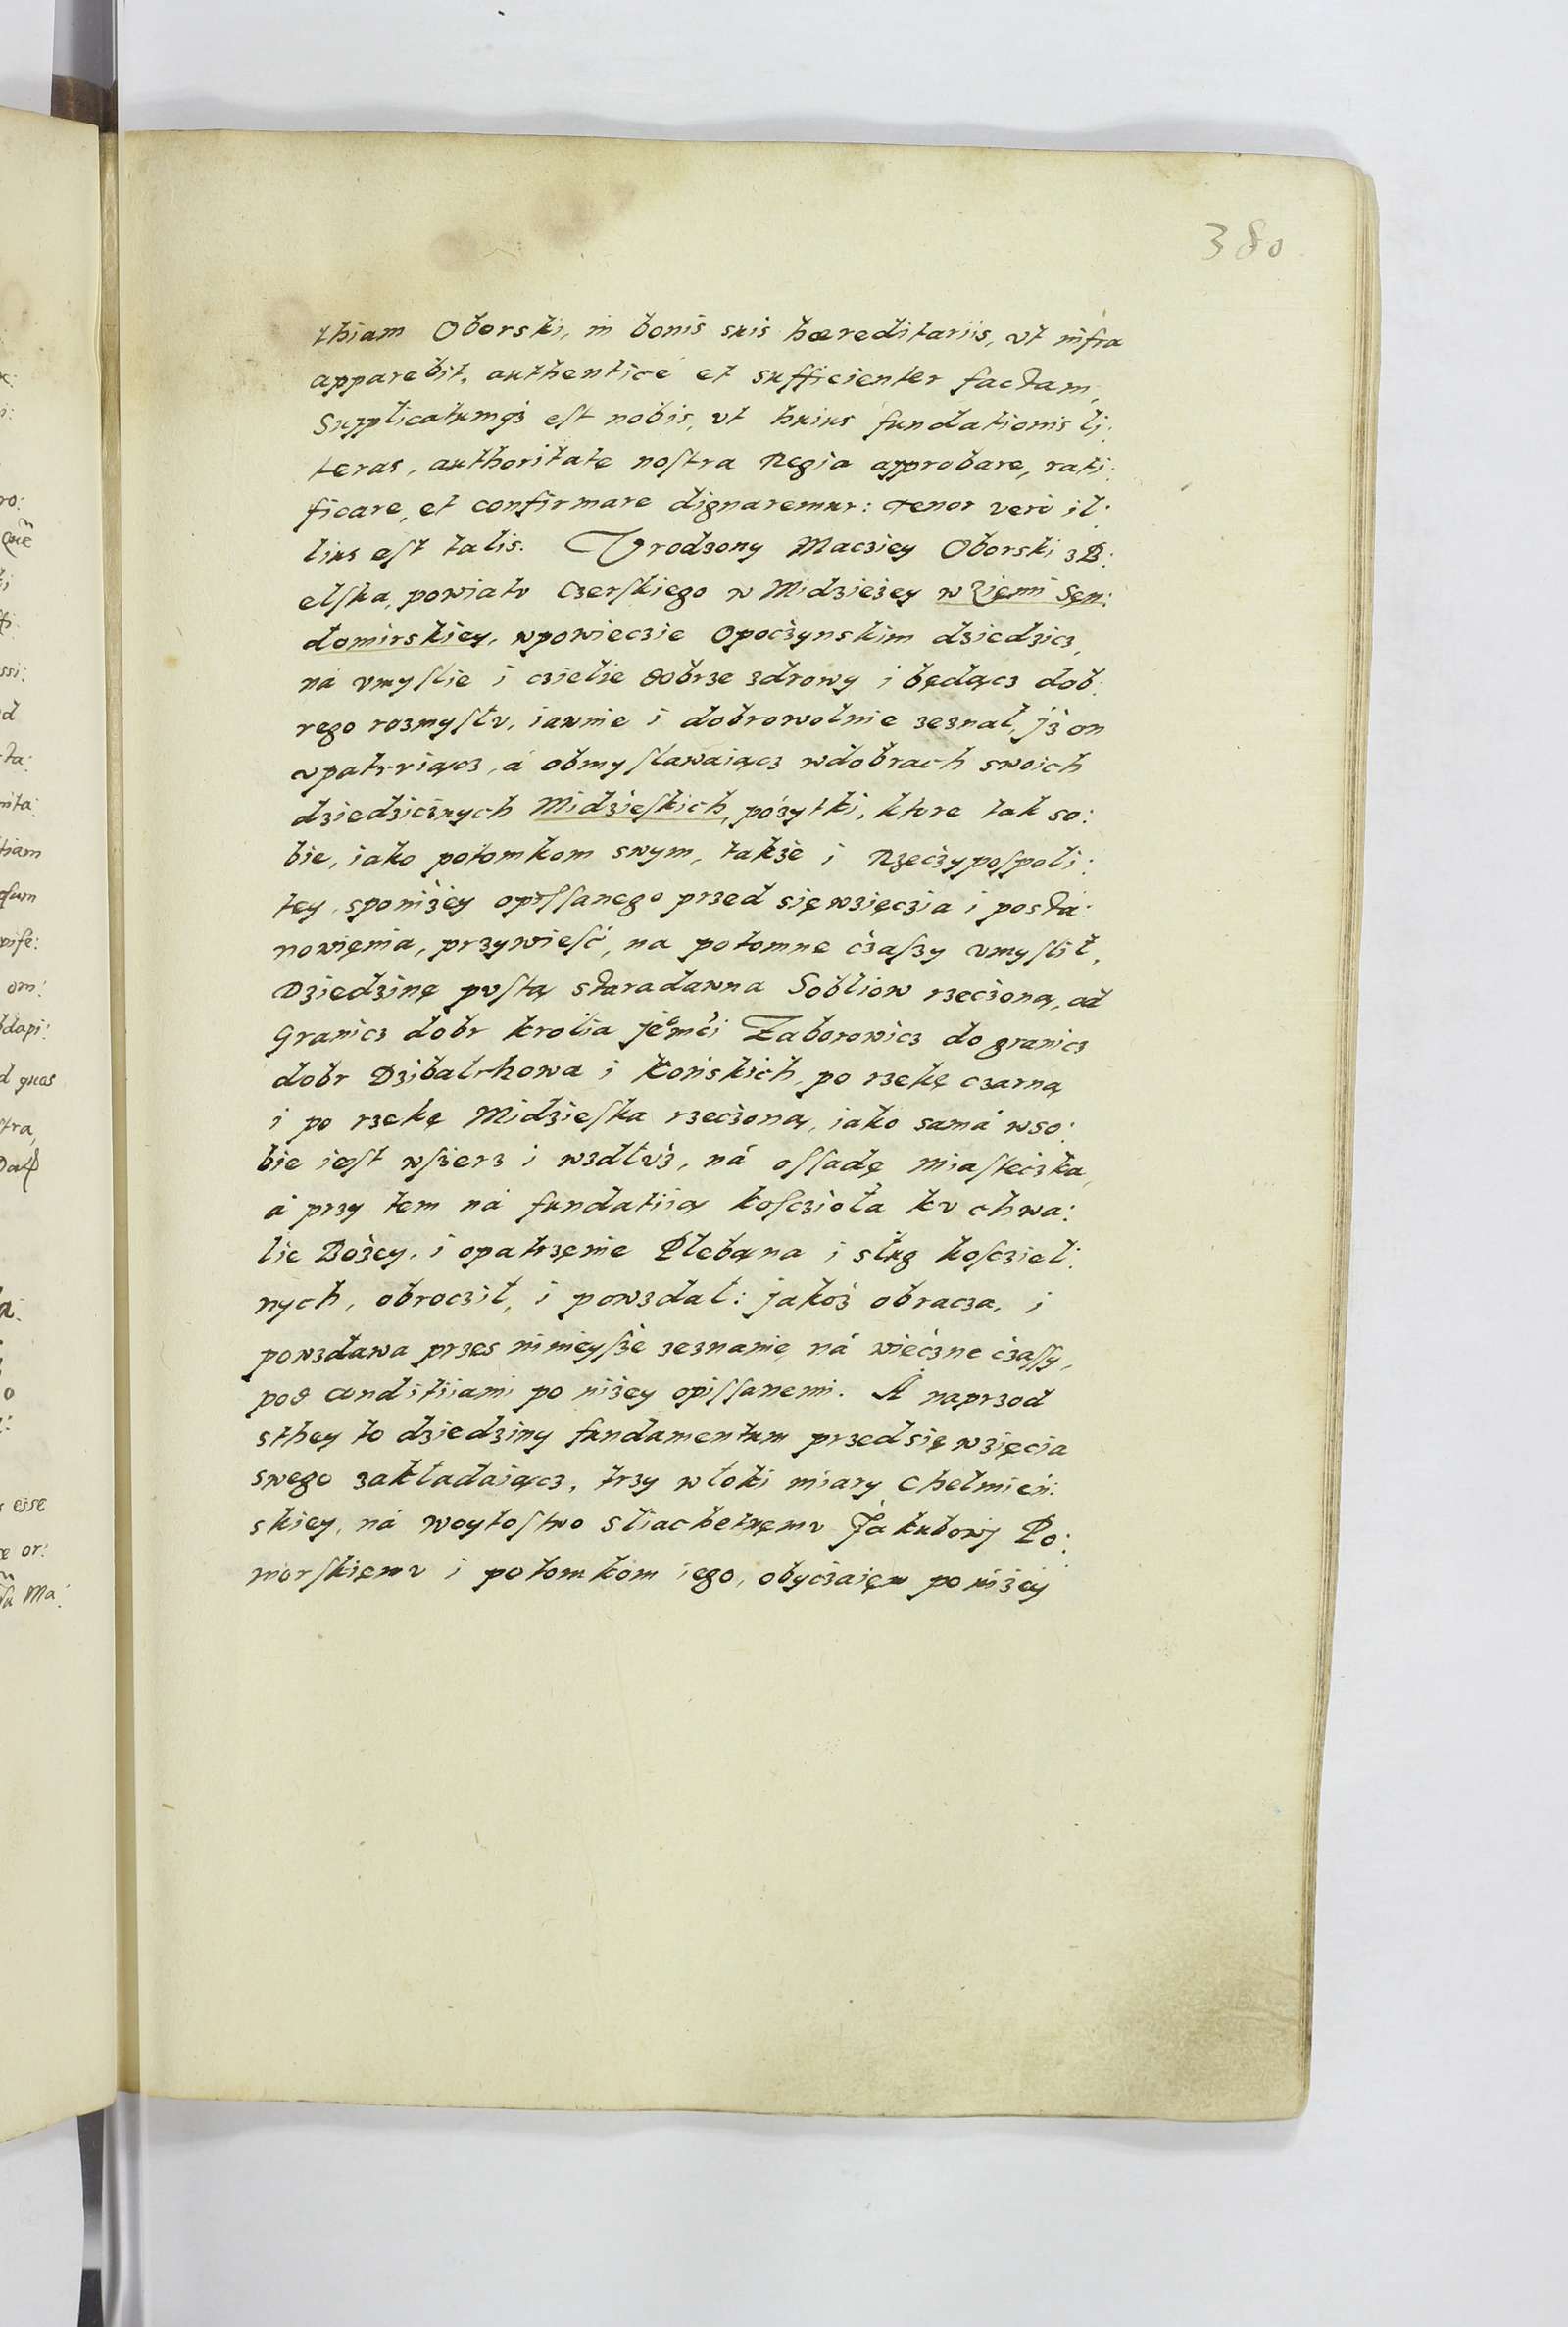 380
thiam Oborski, in bonis suis hæreditariis, vt infra
apparebit, authenticè et sufficienter factam,
Supplicatumq3 est nobis, vt huius fundationis li:
teras, authoritate nostra Regia approbare, rati:
ficare, et confirmare dignaremur: tenor verò il:
lius est talis. Vrodzony Macziey Oborski z B:
elska, powiatv Czerskiego w Midzieżey w Ziemi Sęn:
domirskiey, wpowieczie Opoczynskim dziedzicz,
ná vmyslie i czielie dobrze zdrowy i będącz dob:
rego rozmysłv, iawnie i dobrowolnie zeznał, jż on
vpatrviącz, á obmyslawaiącz wdobrach swoich
dziedzicznych Midzieskich, pożytki, które tak so:
bie, iako potomkom swym, także i Rzeczypospoli:
tey, sponiżey opissanego przed sięwzięczia i posta:
nowięnia, przywiesć, na potomne czaszy vmyslił,
Dziedzinę pvstą staradawna Sobliow rzeczoną, od
Granicz dobr krolia jeo mći Zaborowicz do granicz
dobr Dzibalthowa i Końskich, po rzekę czarną
i po rzekę Midzieska rzeczoną, iako samá wso:
bie iest wszerz i wzdłvż, ná ossadę miasteczka,
á przy tem ná fundatiią kosczioła kv chwa:
lie Bożey, i opatrzęnie Plebana i sług koscziel:
nych, obrocził, i powzdał: jakoż obracza, i
powzdawa przes ninieysże zeznanie, ná wieczne czassy,
pod conditiiami po niżey opissanemi. A naprzod
sthey to dziedziny fundamentum przedsię wzięcia
swego zakładaiącz, trzy włoki miary Chełmień:
skiey, ná woytostwo sliachetnęmv Jakubowj Po:
morskięmv i potomkom iego, obyczaięm poniżey